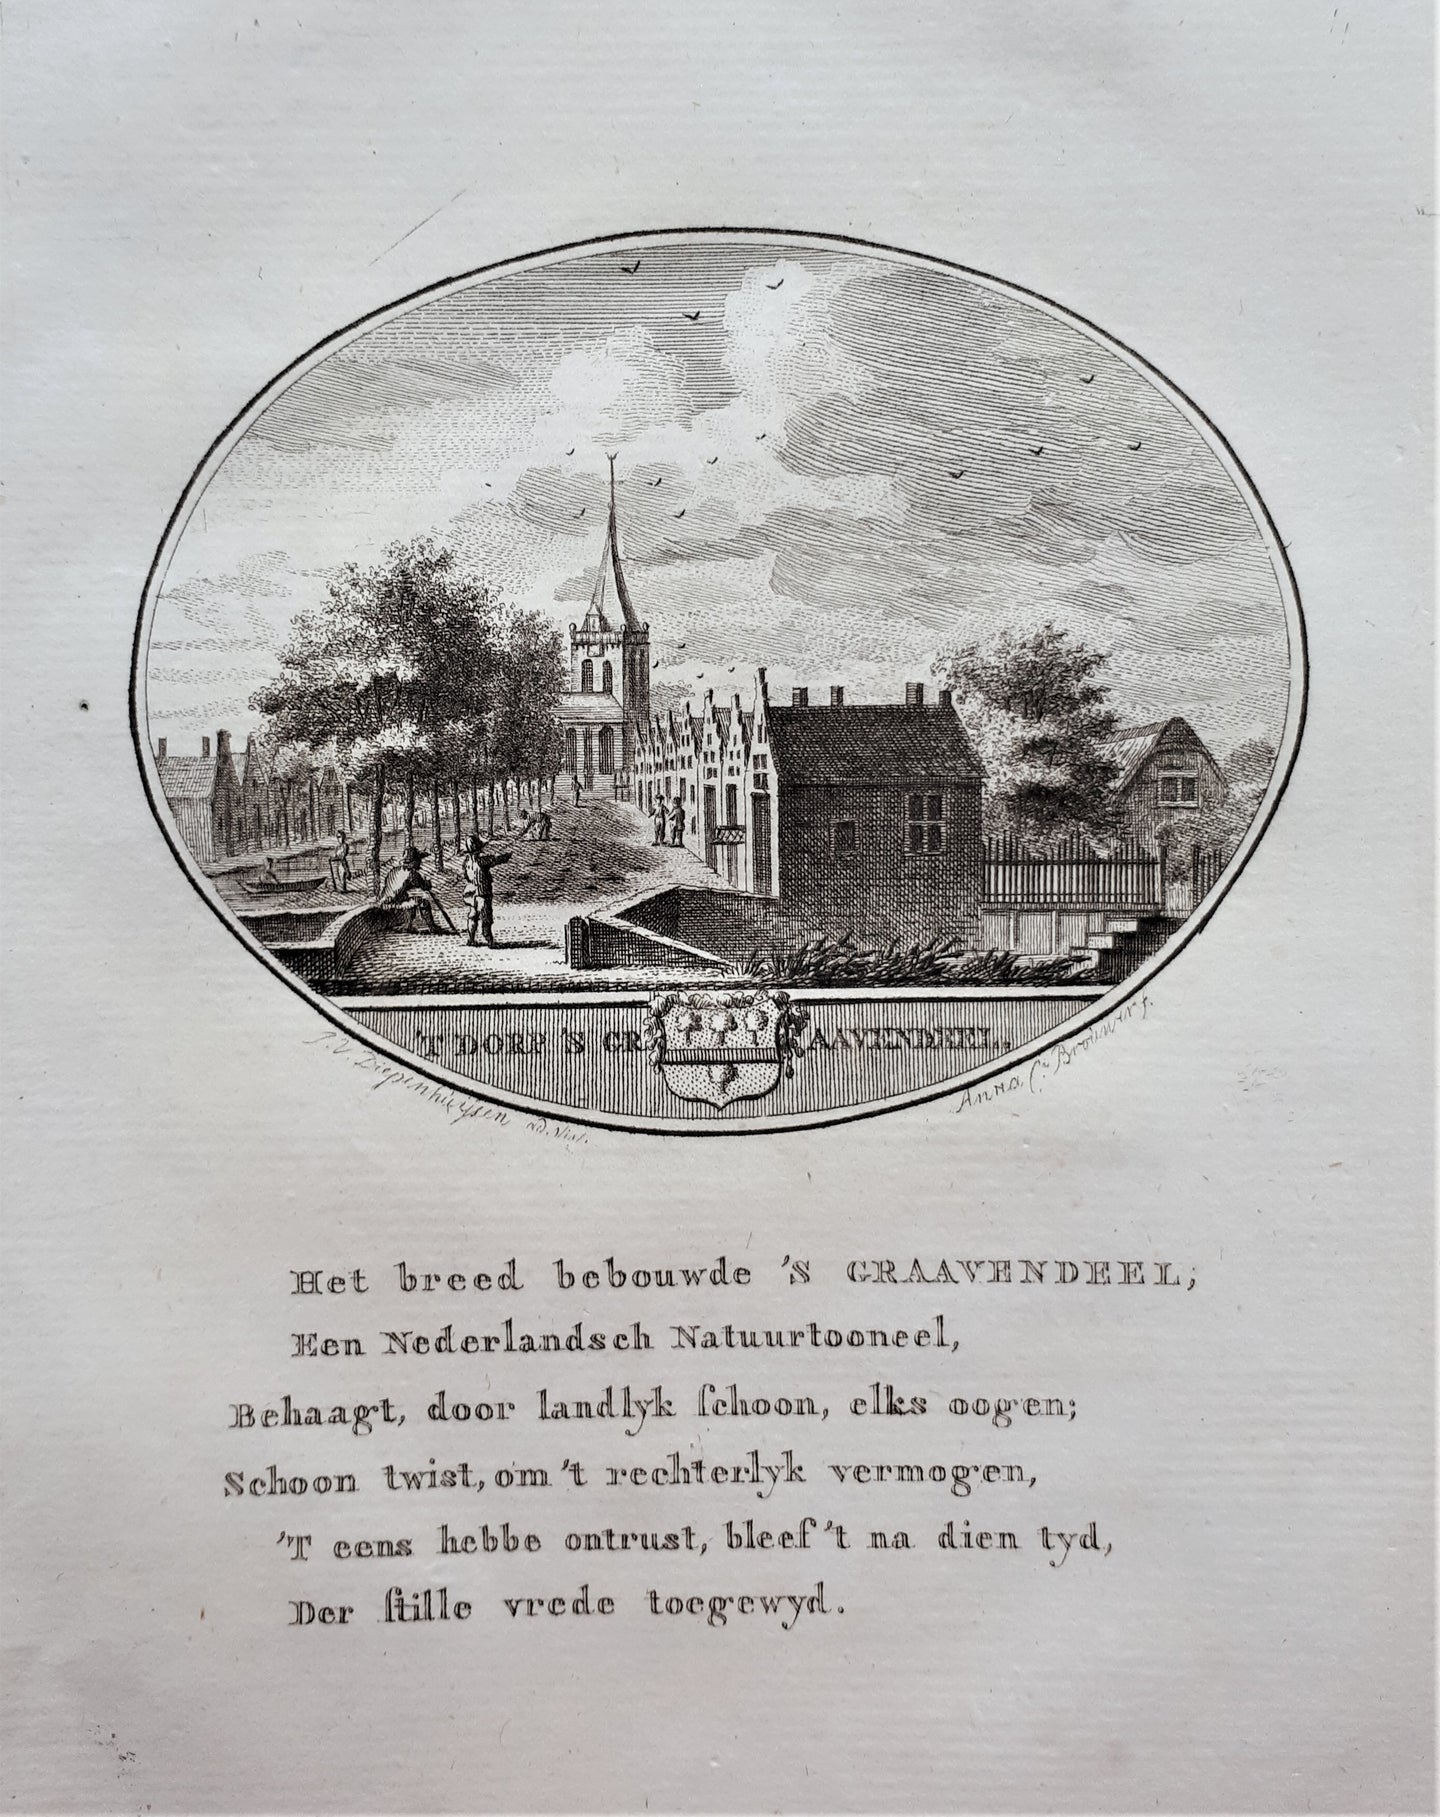 'T DORP 'S GRAAVENDEEL.
J. V. Diepenhuysen ad. viv.
Anna C. Brouwer f.
Het breed bebouwde 'S GRAAVENDEEL;
Een Nederlandsch Natuurtooneel,
Behaagt, door landlyk ſchoon, elks oogen;
Schoon twist, om 't rechterlyk vermogen,
'T eens hebbe ontrust, bleef 't na dien tyd,
Der ſtille vrede toegewyd.